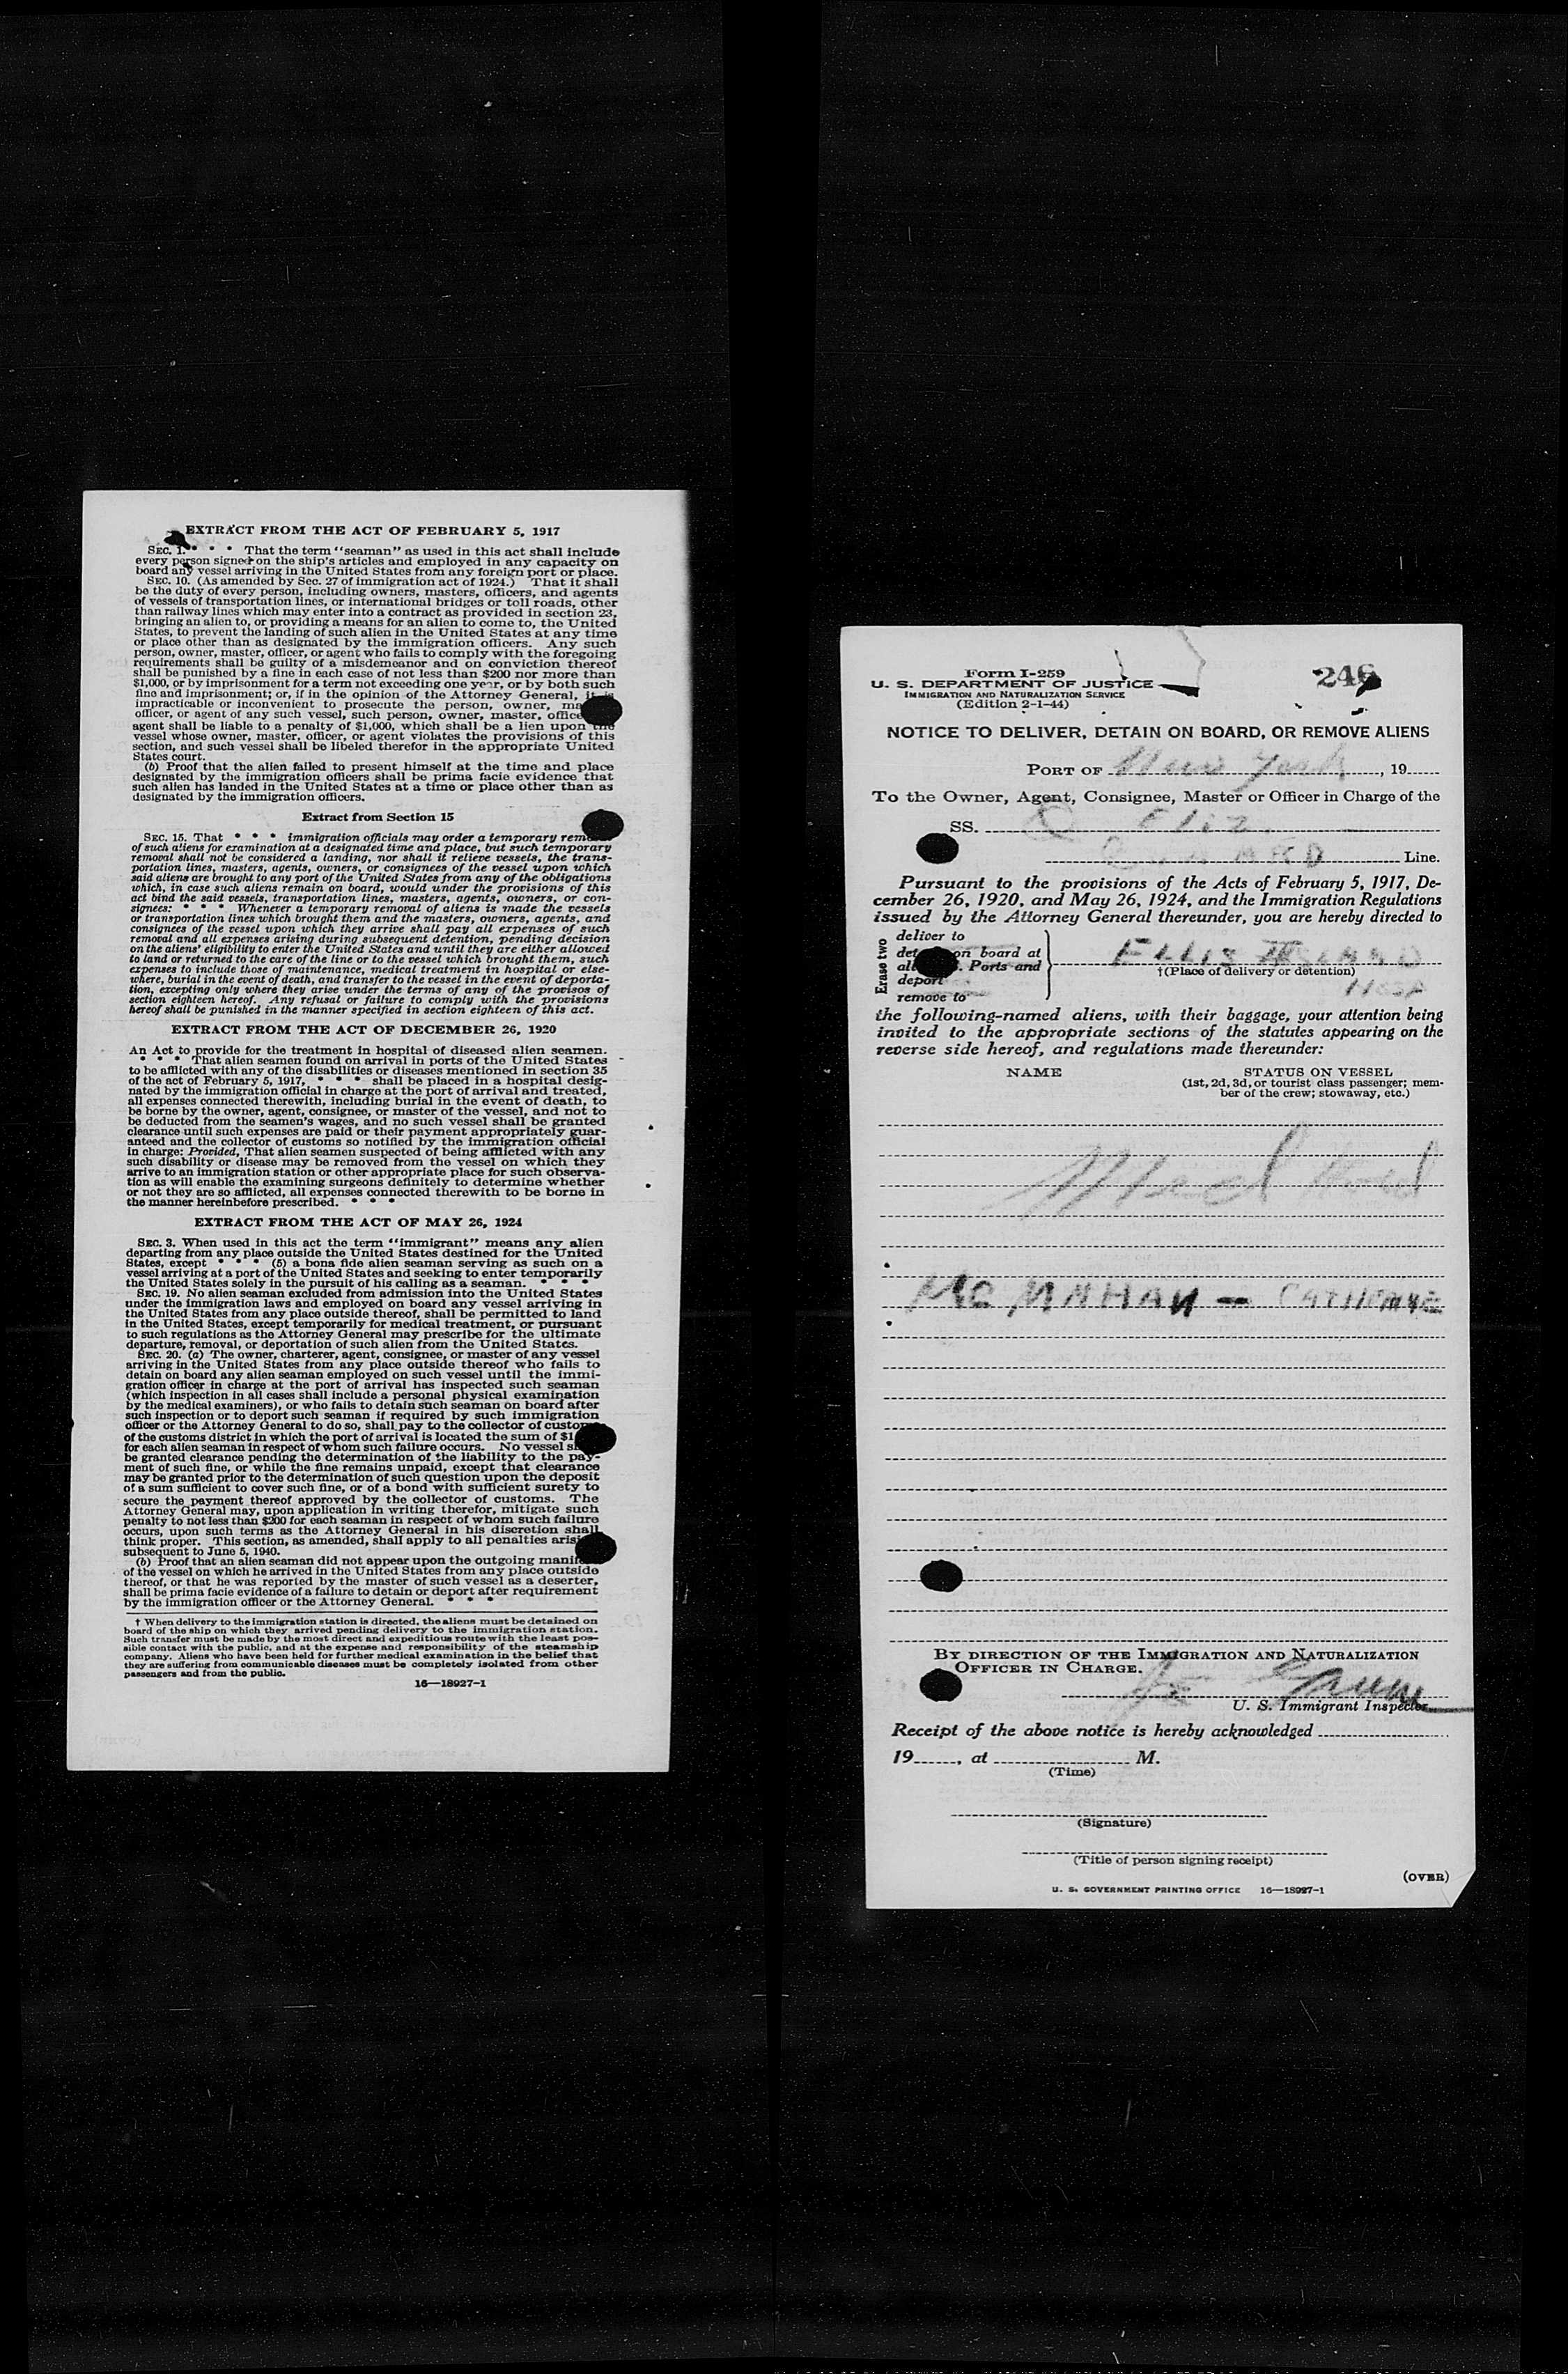 EXTRACT FROM THE ACT OF FEBRUARY 5, 1917
SEC. 1. * * * That the term "seaman" as used in this act shall include
every person signed on the ship's articles and employed in any capacity on
board any vessel arriving in the United States from any foreign port or place.
SEC. 10. (As amended by Sec. 27 of immigration act of 1924.) That it shall
be the duty of every person, including owners, masters, officers, and agents
of vessels of transportation lines, or international bridges or toll roads, other
than railway lines which may enter into a contract as provided in section 23,
bringing an alien to, or providing a means for an alien to come to, the United
States, to prevent the landing of such alien in the United States at any time
or place other than as designated by the immigration officers. Any such
person, owner, master, officer, or agent who fails to comply with the foregoing
requirements shall be guilty of a misdemeanor and on conviction thereof
shall be punished by a fine in each case of not less than $200 nor more than
$1,000, or by imprisonment for a term not exceeding one year, or by both such
fine and imprisonment; or, if in the opinion of the Attorney General, it is
impracticable or inconvenient to prosecute the person, owner, ma
officer, or agent of any such vessel, such person, owner, master, office
agent shall be liable to a penalty of $1,000, which shall be a lien upon the
vessel whose owner, master, officer, or agent violates the provisions of this
section, and such vessel shall be libeled therefor in the appropriate United
States court.
(b) Proof that the alien failed to present himself at the time and place
designated by the immigration officers shall be prima facie evidence that
such alien has landed in the United States at a time or place other than as
designated by the immigration officers.
Extract from Section 15
SEC. 15. That * * * immigration officials may order a temporary rem
of such aliens for examination at a designated time and place, but such temporary
removal shall not be considered a landing, nor shall it relieve vessels, the trans-
portation lines, masters, agents, owners, or consignees of the vessel upon which
said aliens are brought to any port of the United States from any of the obligations
which, in case such aliens remain on board, would under the provisions of this
act bind the said vessels, transportation lines, masters, agents, owners, or con-
signees: * * * Whenever a temporary removal of aliens is made the vessels
or transportation lines which brought them and the masters, owners, agents, and
consignees of the vessel upon which they arrive shall pay all expenses of such
removal and all expenses arising during subsequent detention, pending decision
on the aliens' eligibility to enter the United States and until they are either allowed
to land or returned to the care of the line or to the vessel which brought them, such
expenses to include those of maintenance, medical treatment in hospital or else-
where, burial in the event of death, and transfer to the vessel in the event of deporta-
tion, excepting only where they arise under the terms of any of the provisos of
section eighteen hereof. Any refusal or failure to comply with the provisions
hereof shall be punished in the manner specified in section eighteen of this act.
EXTRACT FROM THE ACT OF DECEMBER 26, 1920
An Act to provide for the treatment in hospital of diseased alien seamen.
* * * That alien seamen found on arrival in ports of the United States
to be afflicted with any of the disabilities or diseases mentioned in section 35
of the act of February 5, 1917, * * * shall be placed in a hospital desig-
nated by the immigration official in charge at the port of arrival and treated,
all expenses connected therewith, including burial in the event of death, to
be borne by the owner, agent, consignee, or master of the vessel, and not to
be deducted from the seamen's wages, and no such vessel shall be granted
clearance until such expenses are paid or their payment appropriately guar-
anteed and the collector of customs so notified by the immigration official
in charge: Provided, That alien seamen suspected of being afflicted with any
such disability or disease may be removed from the vessel on which they
arrive to an immigration station or other appropriate place for such observa-
tion as will enable the examining surgeons definitely to determine whether
or not they are so afflicted, all expenses connected therewith to be borne in
the manner hereinbefore prescribed. * * *
EXTRACT FROM THE ACT OF MAY 26, 1924
SEC. 3. When used in this act the term "immigrant" means any alien
departing from any place outside the United States destined for the United
States, except * * * (5) a bona fide alien seaman serving as such on a
vessel arriving at a port of the United States and seeking to enter temporarily
the United States solely in the pursuit of his calling as a seaman. * * *
SEC. 19. No alien seaman excluded from admission into the United States
under the immigration laws and employed on board any vessel arriving in
the United States from any place outside thereof, shall be permitted to land
in the United States, except temporarily for medical treatment, or pursuant
to such regulations as the Attorney General may prescribe for the ultimate
departure, removal, or deportation of such alien from the United States.
SEC. 20. (a) The owner, charterer, agent, consignee, or master of any vessel
arriving in the United States from any place outside thereof who fails to
detain on board any alien seaman employed on such vessel until the immi-
gration officer in charge at the port of arrival has inspected such seaman
(which inspection in all cases shall include a personal physical examination
by the medical examiners), or who fails to detain such seaman on board after
such inspection or to deport such seaman if required by such immigration
officer or the Attorney General to do so, shall pay to the collector of customs
of the customs district in which the port of arrival is located the sum of $1
for each alien seaman in respect of whom such failure occurs. No vessel s
be granted clearance pending the determination of the liability to the pay-
ment of such fine, or while the fine remains unpaid, except that clearance
may be granted prior to the determination of such question upon the deposit
of a sum sufficient to cover such fine, or of a bond with sufficient surety to
secure the payment thereof approved by the collector of customs. The
Attorney General may, upon application in writing therefor, mitigate such
penalty to not less than $200 for each seaman in respect of whom such failure
occurs, upon such terms as the Attorney General in his discretion shall
think proper. This section, as amended, shall apply to all penalties arisi
subsequent to June 5, 1940.
(b) Proof that an alien seaman did not appear upon the outgoing manif
of the vessel on which he arrived in the United States from any place outside
thereof, or that he was reported by the master of such vessel as a deserter,
shall be prima facie evidence of a failure to detain or deport after requirement
by the immigration officer or the Attorney General. * * *
† When delivery to the immigration station is directed, the aliens must be detained on
board of the ship on which they arrived pending delivery to the immigration station.
Such transfer must be made by the most direct and expeditious route with the least pos-
sible contact with the public, and at the expense and responsibility of the steamship
company. Aliens who have been held for further medical examination in the belief that
they are suffering from communicable diseases must be completely isolated from other
passengers and from the public.
16—18927-1
Form I-259
U. S. DEPARTMENT OF JUSTICE
IMMIGRATION AND NATURALIZATION SERVICE
(Edition 2-1-44)
246
NOTICE TO DELIVER, DETAIN ON BOARD, OR REMOVE ALIENS
PORT OF New York, 19
To the Owner, Agent, Consignee, Master or Officer in Charge of the
SS. Q Eliz.
Line.
Pursuant to the provisions of the Acts of February 5, 1917, De-
cember 26, 1920, and May 26, 1924, and the Immigration Regulations
issued by the Attorney General thereunder, you are hereby directed to
Erase two
deliver to
det on board at
all . Ports and
deport
remove to
ELLIS ISLAND
†(Place of delivery or detention)
Hosp
the following-named aliens, with their baggage, your attention being
invited to the appropriate sections of the statutes appearing on the
reverse side hereof, and regulations made thereunder:
NAME STATUS ON VESSEL
(1st, 2d, 3d, or tourist class passenger; mem-
ber of the crew; stowaway, etc.)
Med
MC MAHAN — CATHERINE
BY DIRECTION OF THE IMMIGRATION AND NATURALIZATION
OFFICER IN CHARGE.
U. S. Immigrant Inspector
Receipt of the above notice is hereby acknowledged
19, at M.
(Time)
(Signature)
(Title of person signing receipt)
(OVER)
U. S. GOVERNMENT PRINTING OFFICE 16—18927-1